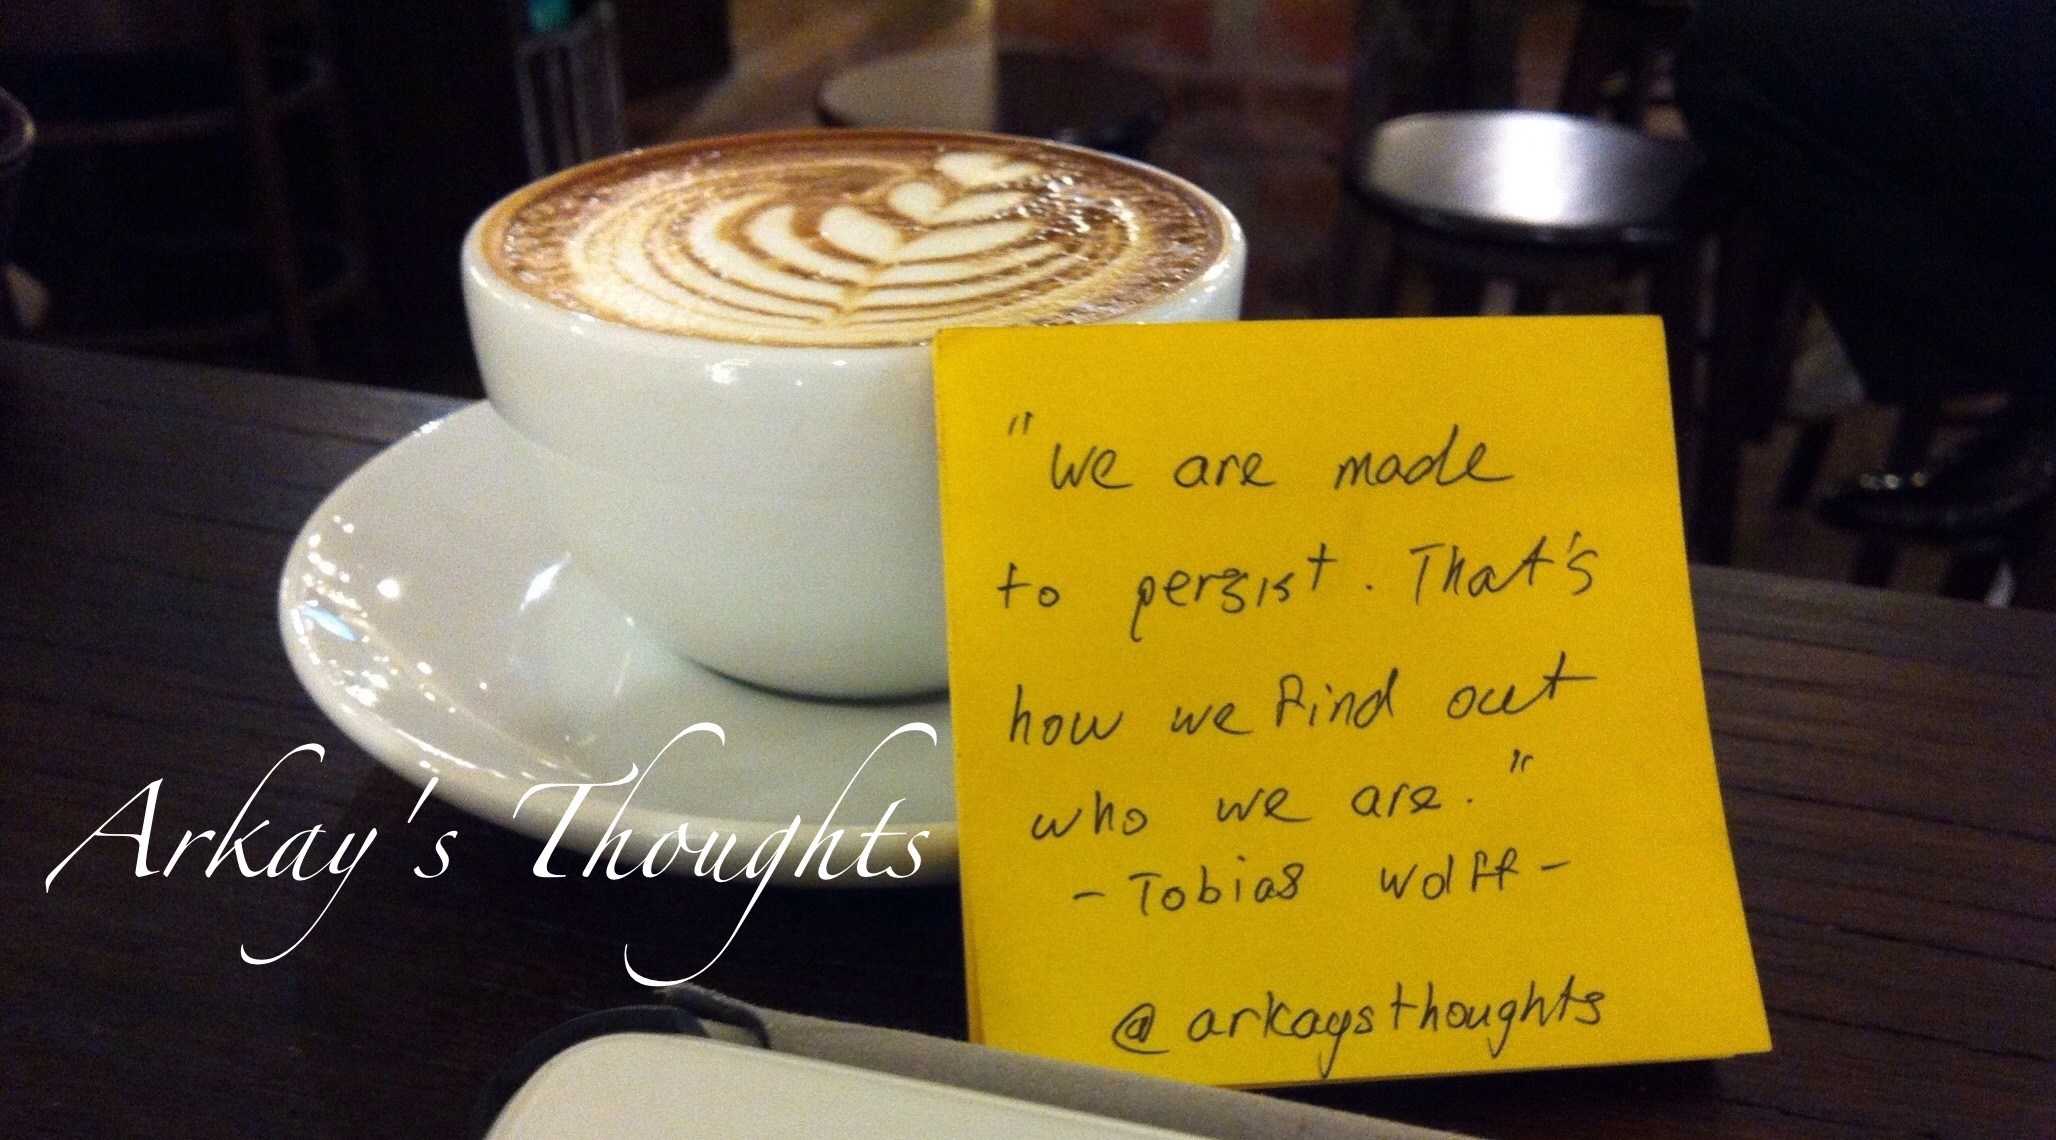 "We are made
to persist. That's
how we find out
who we are."
- Tobias Wolff -
@arkaysthoughts
Arkay's Thoughts